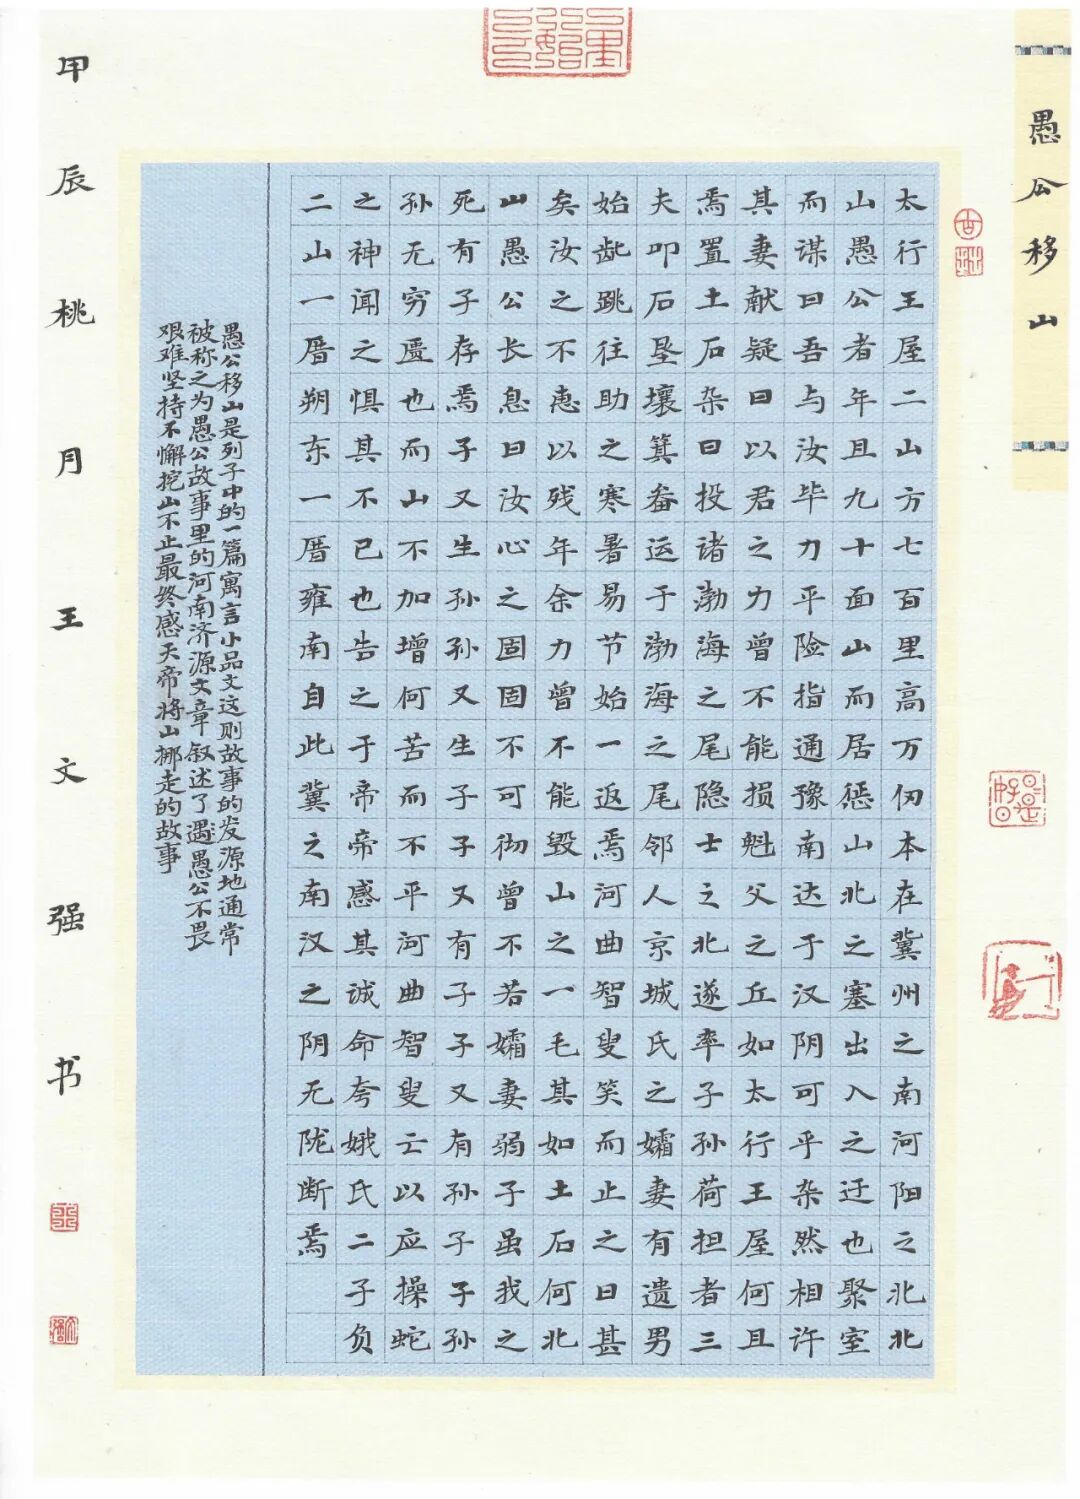 愚公移山
太行王屋二山方七百里高万仞本在冀州之南河阳之北北
山愚公者年且九十面山而居惩山北之塞出入之迂也聚室
而谋曰吾与汝毕力平险指通豫南达于汉阴可乎杂然相许
其妻献疑曰以君之力曾不能损魁父之丘如太行王屋何且
焉置土石杂曰投诸渤海之尾隐士之北遂率子孙荷担者三
夫叩石垦壤箕畚运于渤海之尾邻人京城氏之孀妻有遗男
始龀跳往助之寒暑易节始一返焉河曲智叟笑而止之曰甚
矣汝之不惠以残年余力曾不能毁山之一毛其如土石何北
山愚公长息曰汝心之固固不可彻曾不若孀妻弱子虽我之
死有子存焉子又生孙孙又生子子又有子子又有孙子子孙
孙无穷匮也而山不加增何苦而不平河曲智叟亡以应操蛇
之神闻之惧其不已也告之于帝帝感其诚命夸娥氏二子负
二山一厝朔东一厝雍南自此冀之南汉之阴无陇断焉
愚公移山是列子中的一篇寓言小品文这则故事的发源地通常
被称之为愚公故事里的河南济源文章叙述了遇愚公不畏
艰难坚持不懈挖山不止最终感天帝将山挪走的故事
甲辰桃月王文强书